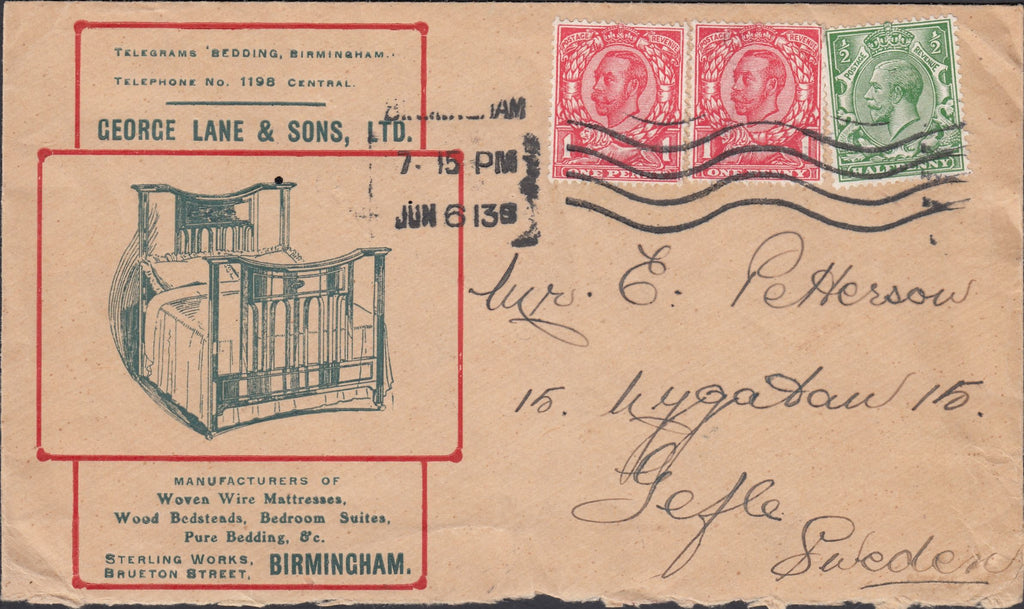 TELEGRAMS 'BEDDING, BIRMINGHAM.'
TELEPHONE NO. 1198 CENTRAL.
GEORGE LANE & SONS, LTD.
7-15 PM
JUN 6 13
POSTAGE REVENUE
1 1
ONE PENNY
POSTAGE REVENUE
1
ONE PENNY
½ ½
POSTAGE REVENUE
HALFPENNY
Mr. E. Petterson
15. Nygatan 15.
Gefle
Sweden
MANUFACTURERS OF
Woven Wire Mattresses,
Wood Bedsteads, Bedroom Suites,
Pure Bedding, &c.
STERLING WORKS,
BRUETON STREET, BIRMINGHAM.